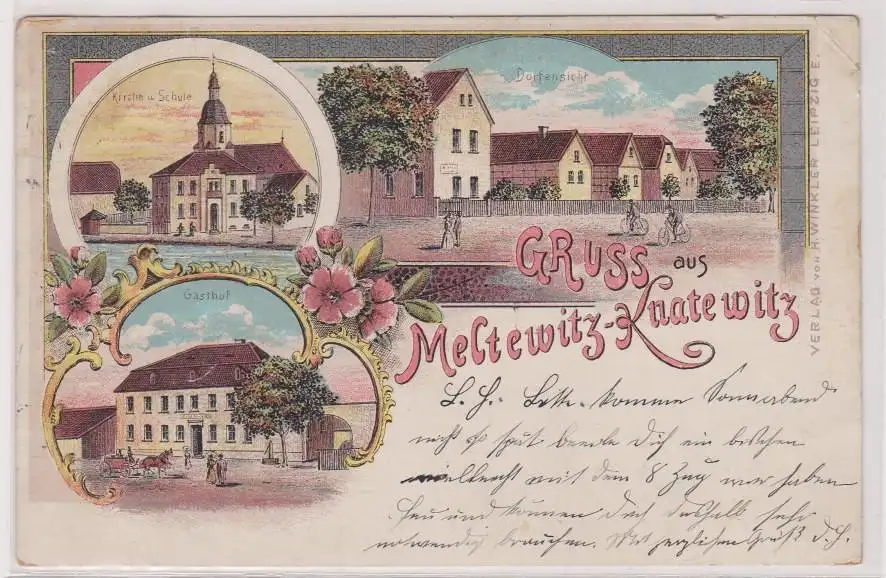 Kirche u. Schule
Dorfansicht
Gasthof
GRUSS aus
Meltewitz-Knatewitz
VERLAG VON H. WINKLER LEIPZIG E.
L. H. komme Sonnabend
nicht so spät beeile Dich ein bischen
vielleicht mit dem 8 Zug wir haben
Heu und können Dich deshalb sehr
notwendig brauchen. Mit herzlichen Gruß d. H.